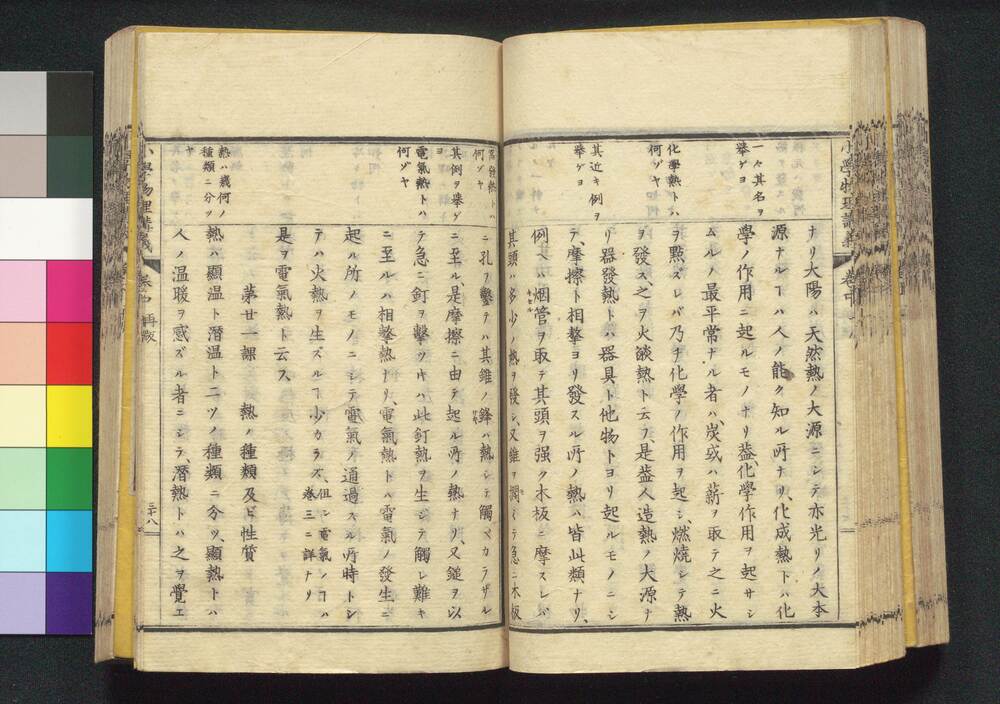 小學物理講義 卷中
一々其名ヲ
擧ゲヨ
化學熱トハ
何ゾヤ
其近キ例ヲ
擧ゲヨ
ナリ大陽ハ天然熱ノ大源ニシテ亦光リノ大本
源ナルヿハ人ノ能ク知ル所ナリ、化成熱トハ化
學ノ作用ニ起ルモノナリ蓋化學作用ヲ起サシ
ムルノ最平常ナル者ハ炭或ハ薪ヲ取テ之ニ火
ヲ點ズレバ乃チ化學ノ作用ヲ起シ、燃燒シテ熱
ヲ發ス、之ヲ火燄熱ト云フ是蓋人造熱ノ大源ナ
リ器發熱トハ器具ト他物トヨリ起ルモノニシ
テ、摩擦ト相擊ヨリ發スル所ノ熱ハ皆此類ナリ、
例ヘバ烟管ヲ取テ其頭ヲ强ク木板ニ摩スレバ
キセル
其頭ハ多少ノ熱ヲ發シ、又錐ヲ テ急ニ木板
熱トハ
何ゾヤ
其例ヲ擧ゲ
ヨ
電氣熱トハ
何ゾヤ
熱ハ幾何ノ
種類ニ分ツ
ヤ
ニ孔ヲ鑿テハ其錐ノ鋒ハ熱シテ觸ベカラザル
ニ至ル、是摩擦ニ由テ起ル所ノ熱ナリ、又鎚ヲ以
テ急ニ釘ヲ擊ツトキハ此釘熱ヲ生シテ觸レ難キ
ニ至ルハ相擊熱ナリ、電氣熱トハ電氣ノ發生ニ
起ル所ノモノニシテ電氣ノ通過スル所時トシ
テハ火熱ヲ生ズルヿ少カラズ、但シ電氣ノヿハ
卷三ニ詳ナリ
是ヲ電氣熱ト云ス
苐廿一課 熱ノ種類及ビ性質
熱ハ顯温ト潜温ト二ツノ種類ニ分ツ、顯熱トハ
人ノ温暖ヲ感ズル者ニシテ、潜熱トハ之ヲ覺エ
小學物理講義 再版
二十八